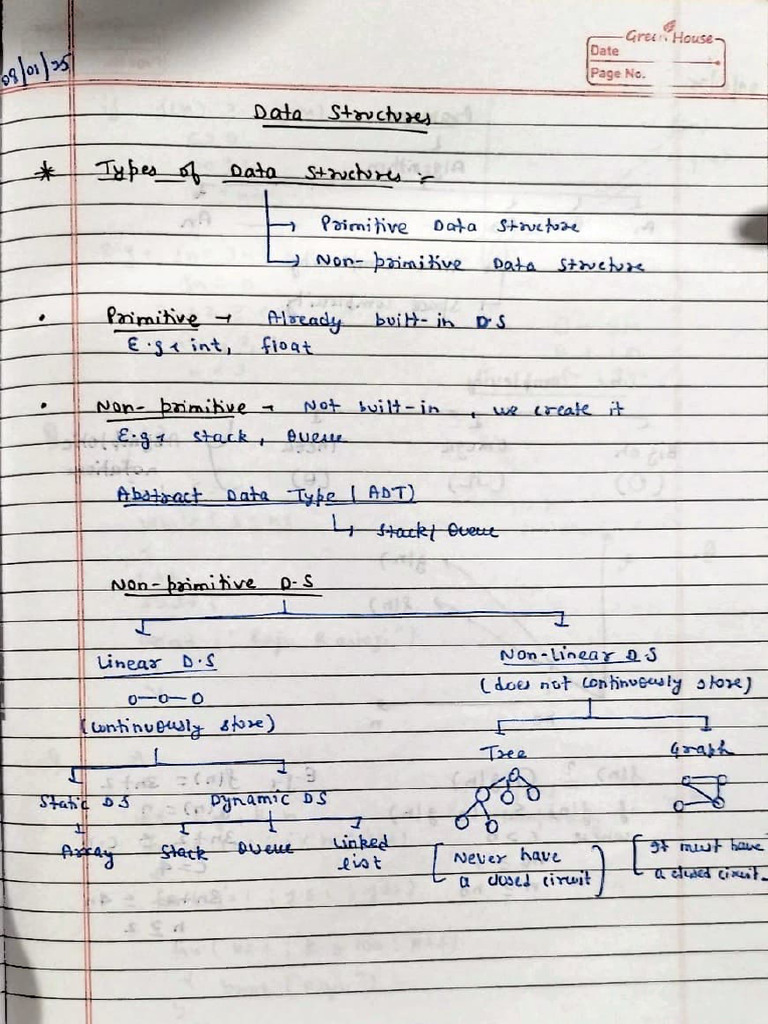 08/01/25
Green House
Date
Page No.
Data Structures
* Types of Data Structures :-
→ Primitive Data Structure
→ Non-primitive Data Structure
• Primitive → Already built-in D.S
E.g → int, float
• Non-primitive → Not built-in, we create it
E.g → Stack, Queue
Abstract Data Type (ADT)
↳ Stack/Queue
Non-primitive D.S
Linear D.S Non-linear D.S
(continuously store) (does not continuously store)
Tree Graph
Static DS Dynamic DS
Array Stack Queue Linked list
[Never have a closed circuit] [It must have a closed circuit.